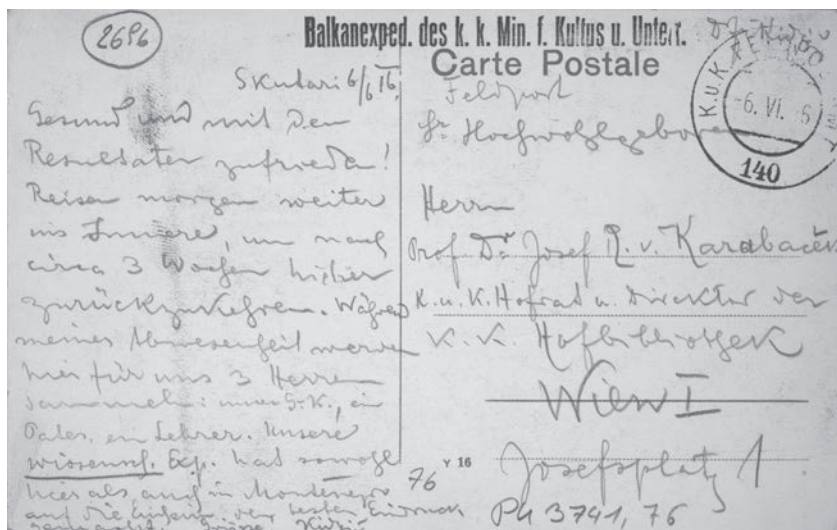 2696
Balkanexped. des k. k. Min. f. Kultus u. Unterr.
Carte Postale
Skutari 6/6 16.
Gesund und mit den
Resultaten zufrieden!
Reisen morgen weiter
ins Innere, um nach
circa 3 Wochen hieher
zurückzukehren. Während
meiner Abwesenheit werden
hier für uns 3 Herren
sammeln: unser G.K., ein
Pater, ein Lehrer. Unsere
wissensch. Exp. hat sowohl
hier als auch in Montenegro
auf die Einheim. den besten Eindruck
gemacht. Grüsse
Feldpost
Sr Hochwohlgeboren
Herrn
Prof. Dr. Josef R. v. Karabaček
K. u. K. Hofrat u. Direktor der
K. K. Hofbibliothek
Wien I
Josefsplatz 1
K.u.K.
-6. VI. 
140
76
Y 16
Ph 3741, 76